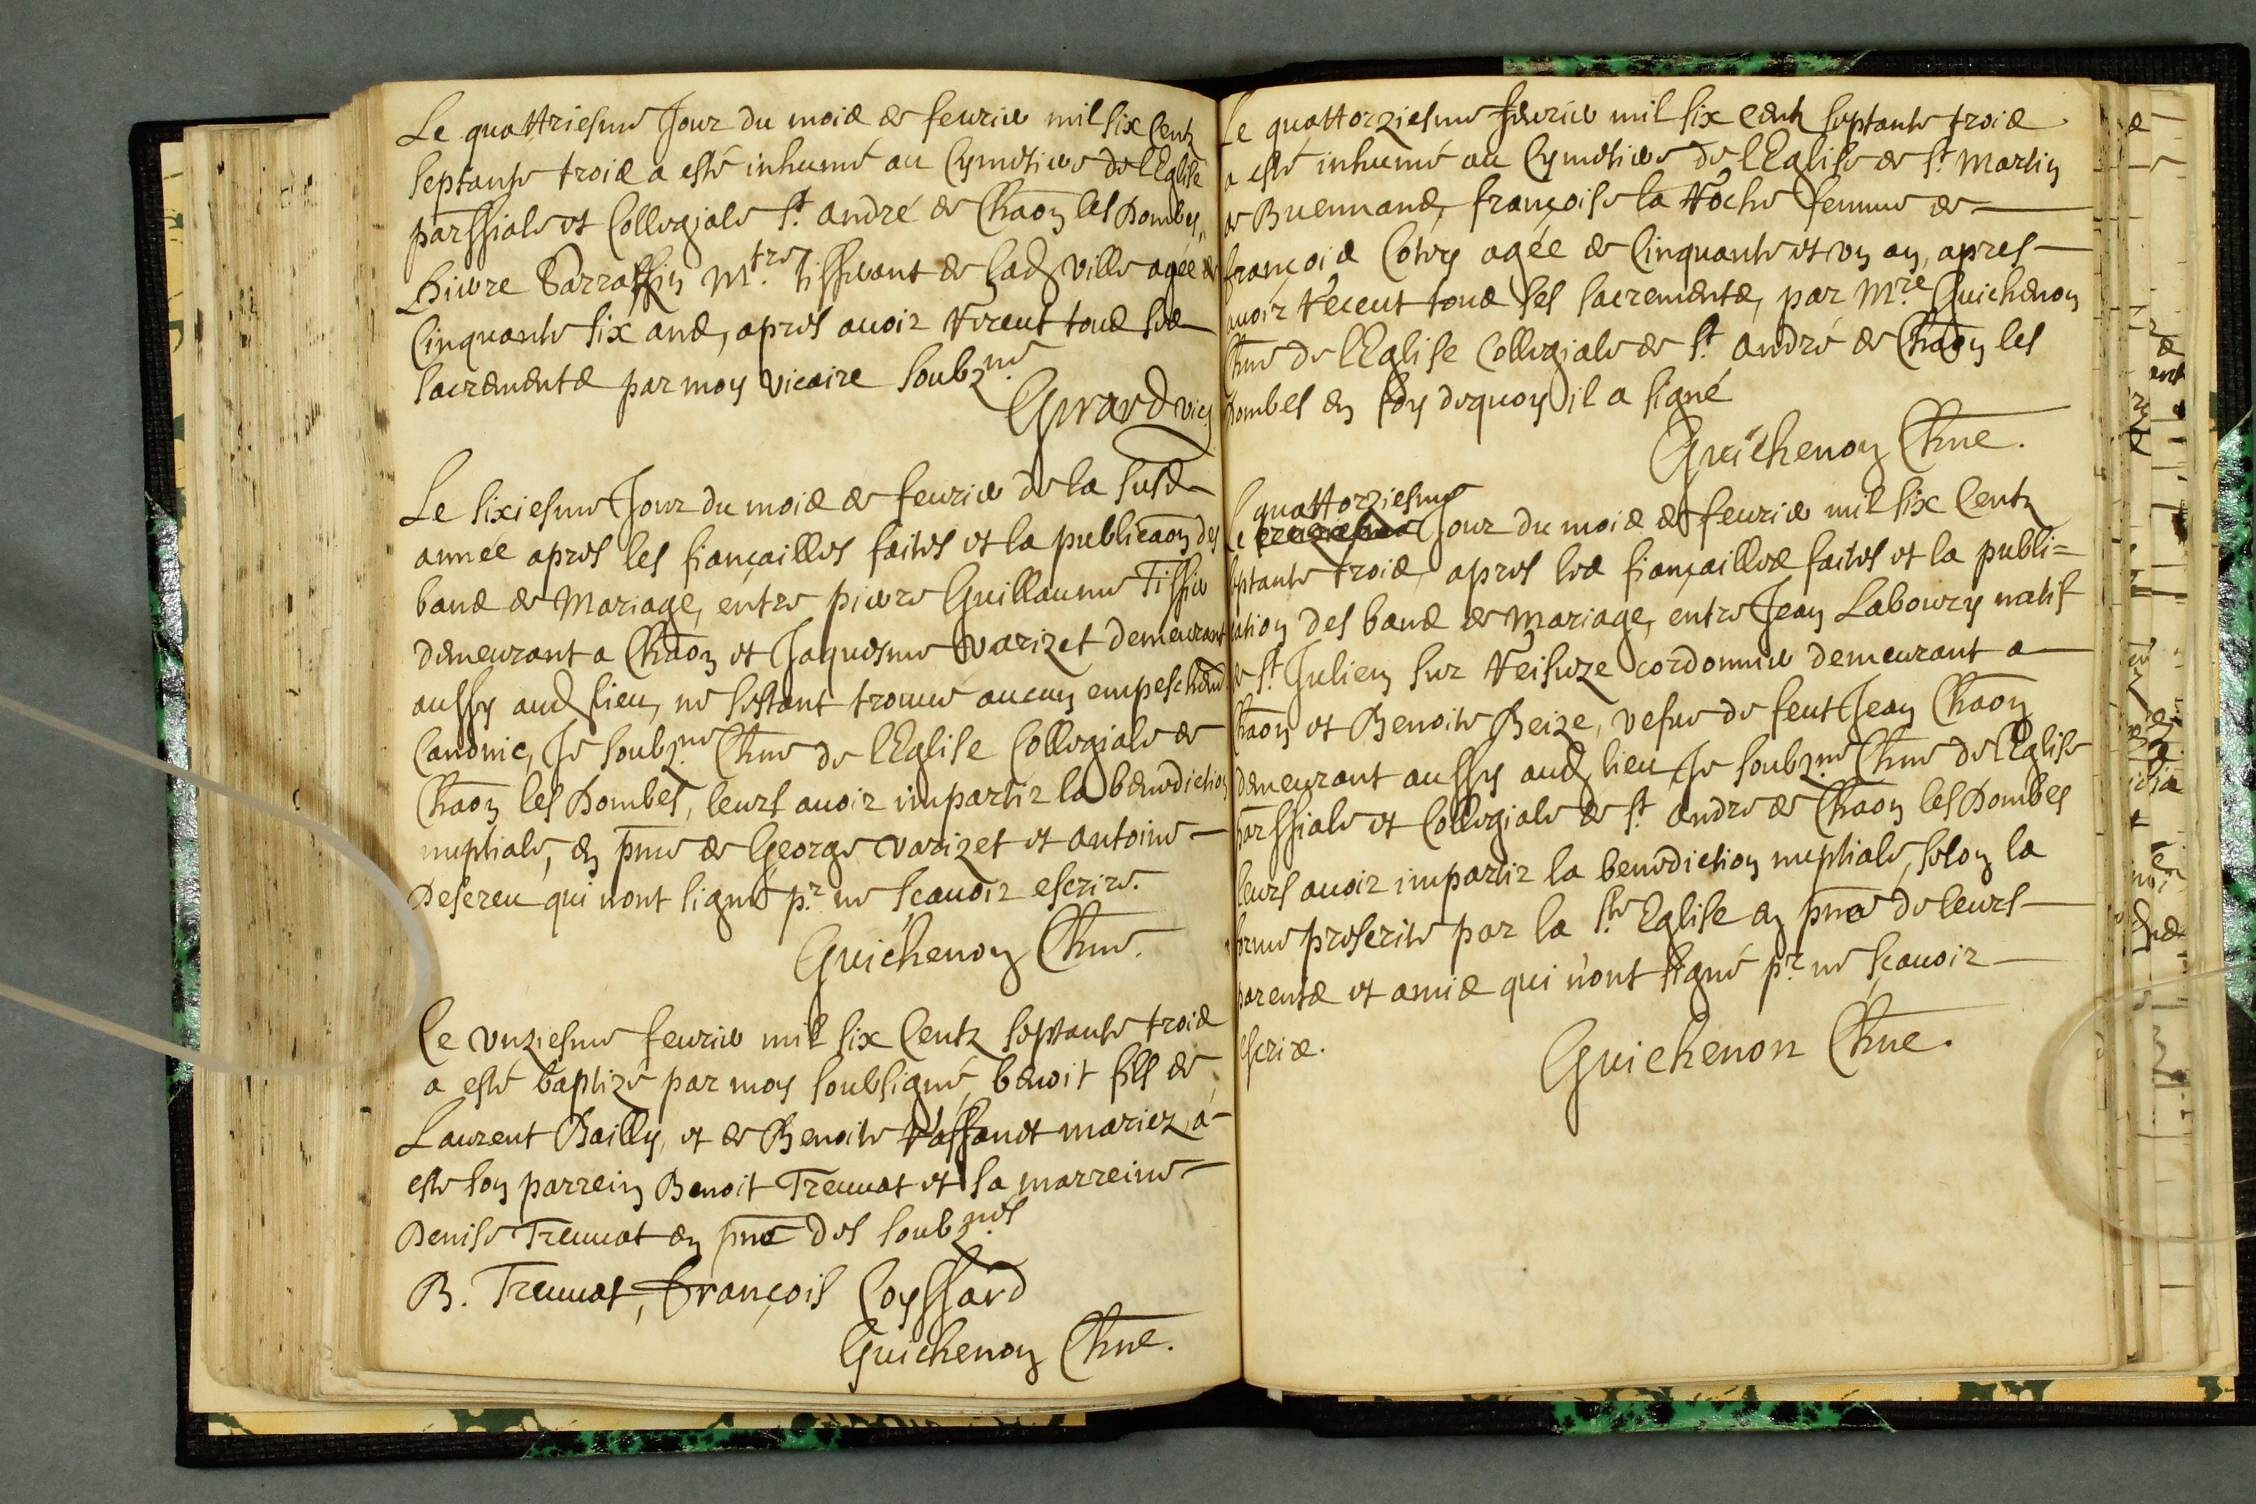 Le quattriesme Jour du mois de feurier mil six Centz
septante trois a esté inhumé au Cymetiere de l'Eglise
parssiale et Collegiale St. André de Chãon les Dombes,
Pierre Sarrassin Mtre. tissérant de lad. ville agée de
Cinquante six ans, apres auoir Receut tous ses
sacrements par moy vicaire soubzné
Girard vic.
Le sixiesme Jour du mois de feurier de la susd.
année apres les fiançailles faites et la publicãon des
bans de Mariage, entre pierre Guillaume Tissier
demeurant a Chãon et Jaquesme Varizet demeurant
aussy aud. lieu, ne sestant trouué aucun empeschemt
Canonic, Je soubzné. Chne de l'Eglise Collegiale de
Chãon les Dombes, leurs auoir impartir la benediction
nuptiale, en pñce de George Varizet et antoine
Desereu qui n'ont signé pr. ne scauoir escrire.
Guichenon Chne.
Le vnziesme feurier mil six Centz septante trois
a esté baptizé par moy soubsigné, benoit fils de
Laurent Bailly, et de Benoite Vassanet mariez, a
esté son parrein Benoit Treuuat et sa marreine
Denise Treuuat en pñce des soubznés
B. Treuuat, françois Coyssard
Guichenon Chne.
Le quattorziesme feurier mil six centz septante trois
a esté inhumé au Cymetiere de l'Eglise de St. Martin
de Buennand, françoise la Roche femme de
françois Cotey agée de Cinquante et vn an, apres
auoir Receut tous ses sacrements, par Mre. Guichenon
Chne de l'Eglise Collegiale de St. André de Chãon les
Dombes en foy dequoy il a signé
Guichenon Chne.
quattorziesme
Le Jour du mois de feurier mil six Centz
septante trois, apres les fiançailles faites et la publi=
cation des bans de Mariage, entre Jean Laboury natif
de St. Julien sur Reisuze cordonnier demeurant a
Chãon et Benoite Beize, vefue de feut Jean Chãon
demeurant aussy aud. lieu Je soubzné Chne de l'Eglise
parssiale et Collegiale de St. andre de Chãon les Dombes
leurs auoir impartir la benediction nuptiale, selon la
forme prescrite par la Ste Eglise en pñce de leurs
parents et amis qui n'ont signé pr. ne scauoir
escrire.
Guichenon Chne.